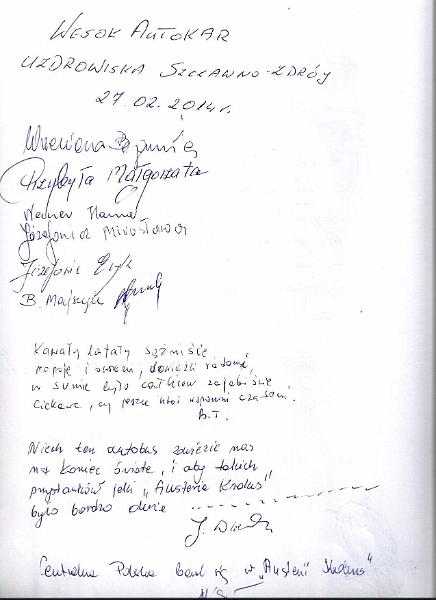 WESOŁ AUTOKAR
UZDROWISKA SZCZAWNO-ZDRÓJ
27.02.2014r.
Przybyła Małgorzata
Hanna
Józefowicz Mirosława
B. Majszyk
Kawały latały sążniście
napoje i owszem, dowieźli radość,
w sumie było całkiem zajebiście
ciekawe, czy jeszcze ktoś wspomni czasem.
B.T.
Niech ten autobus zawiezie nas
na koniec świata, i aby takich
przystanków jak „Austeria Krokus"
było bardzo dużo
J.
Centralna Polska bawi się w „Austerii Krokus"